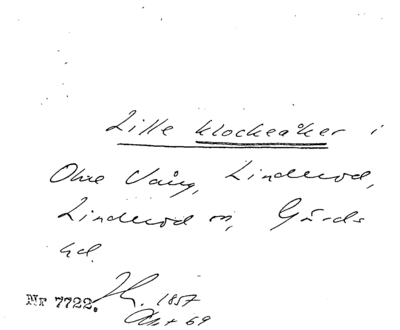 Lille klockeåker i
Ohne Vång, Linderod,
Linderod sn, Gärds
hd.
Nr 7722. 1857
Akt 69